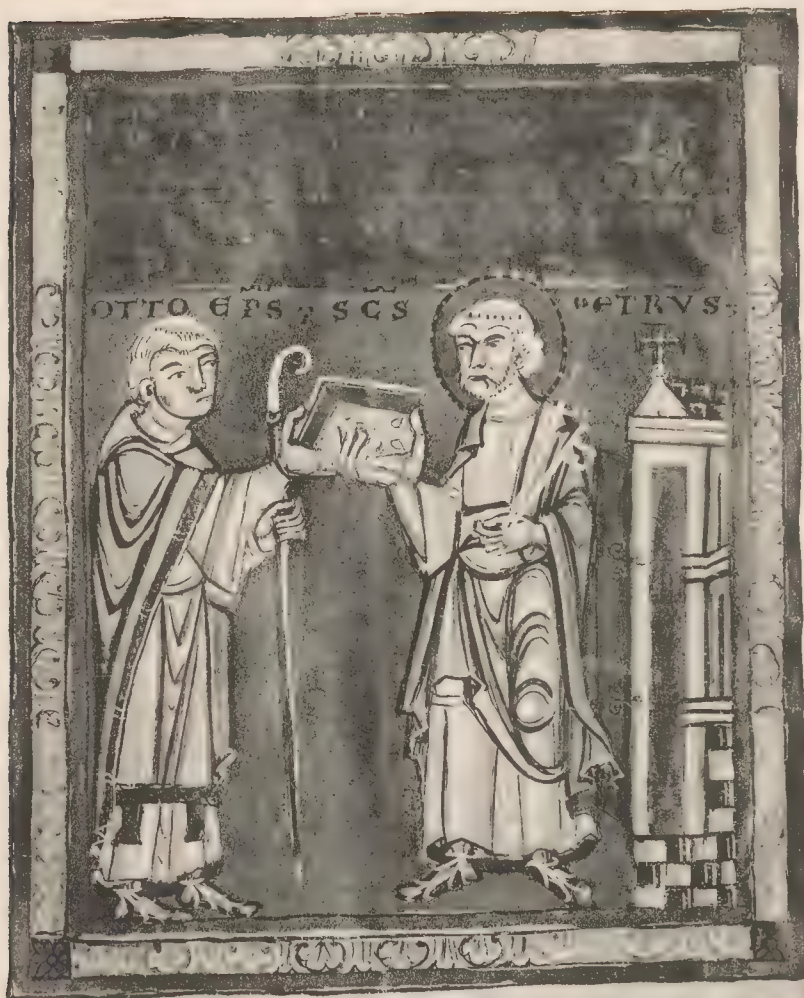 OTTO EPS SCS PETRVS